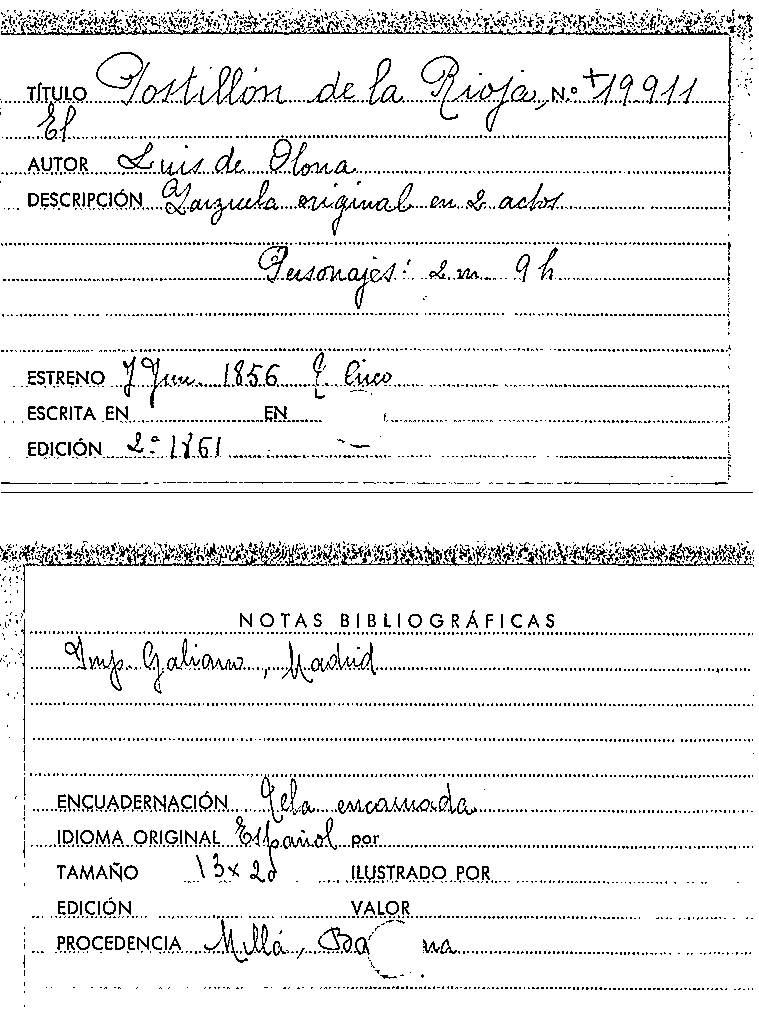 TÍTULO Postillón de la Rioja, N.º +19911
El
AUTOR Luis de Olona
DESCRIPCIÓN Zarzuela original en 2 actos
Personajes: 2 m. 9 h
ESTRENO 7 Jun. 1856 T. Circo
ESCRITA EN EN
EDICIÓN 2.ª 1861
NOTAS BIBLIOGRÁFICAS
Imp. Galiano, Madrid
ENCUADERNACIÓN Tela encarnada
IDIOMA ORIGINAL Español por
TAMAÑO 13 x 20 ILUSTRADO POR
EDICIÓN VALOR
PROCEDENCIA Millá, Ba na